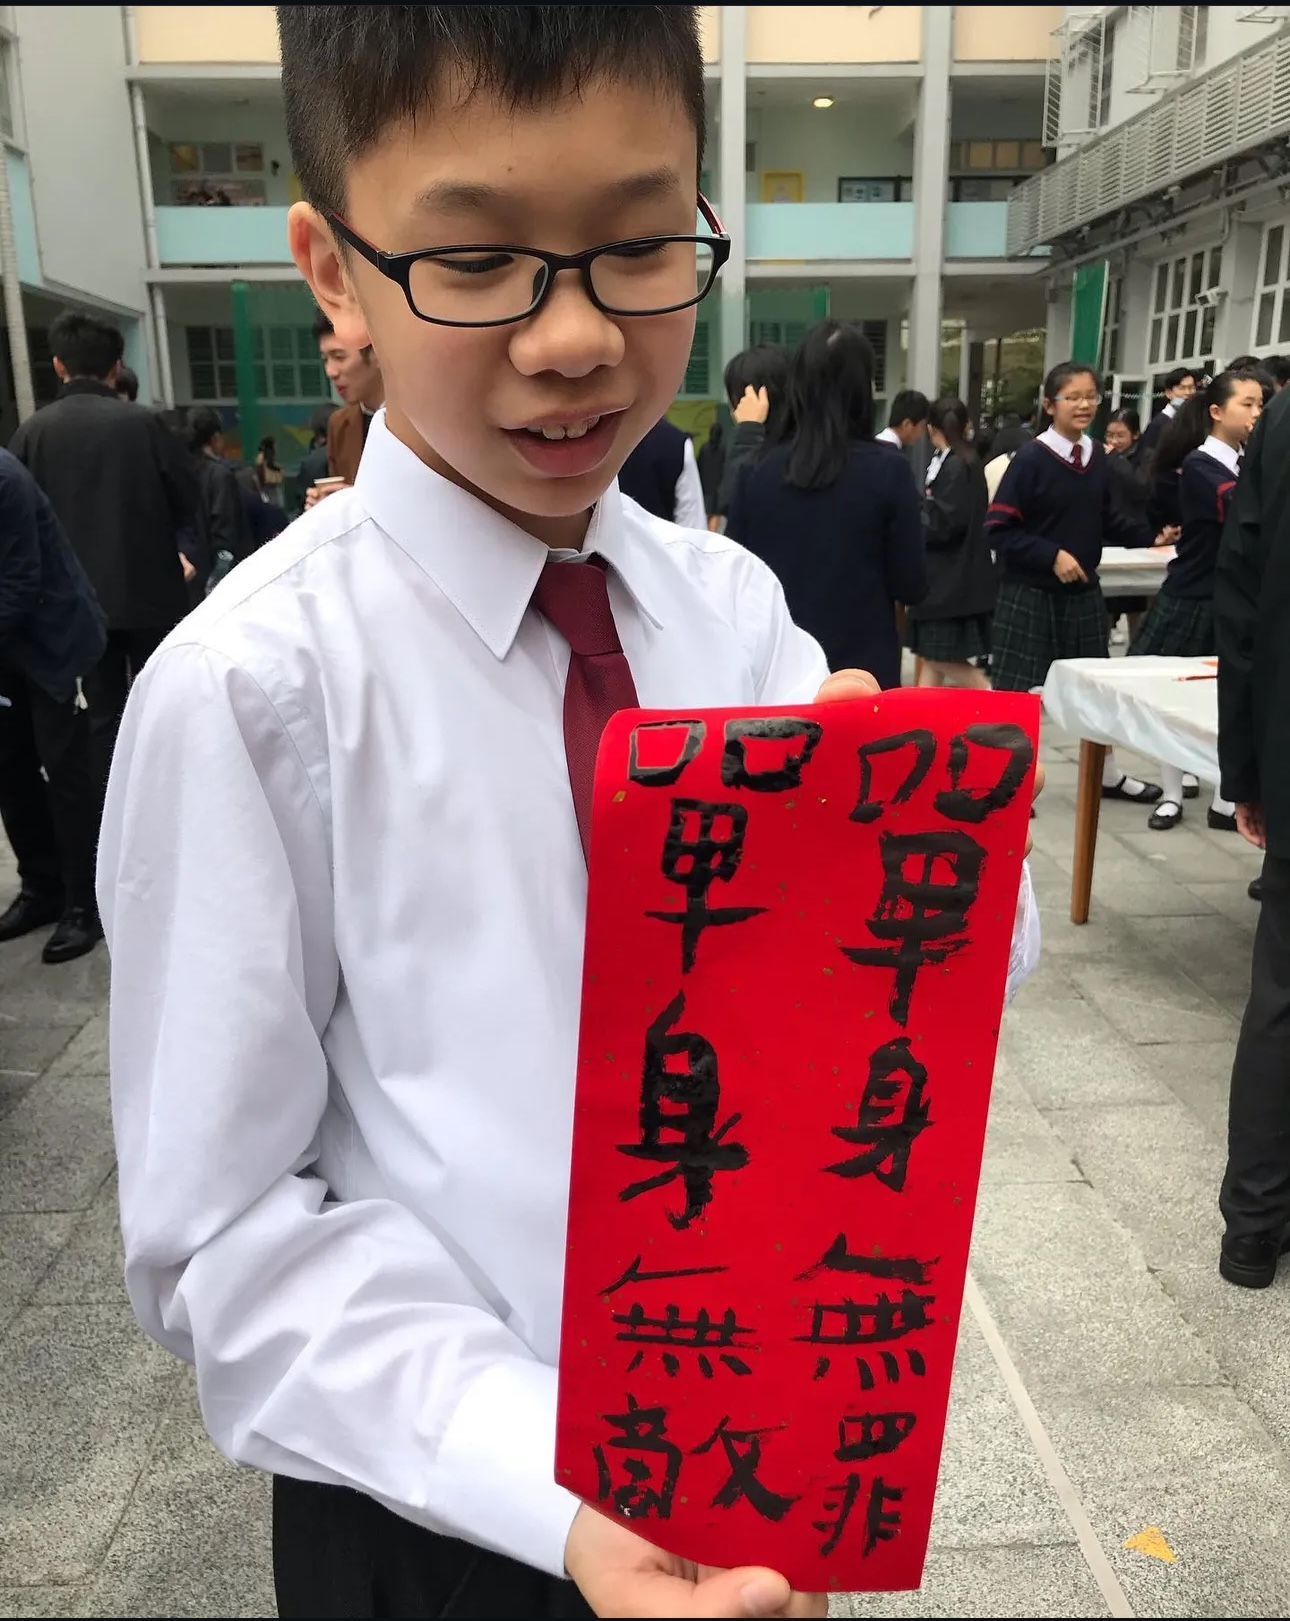 單身無罪
單身無敵